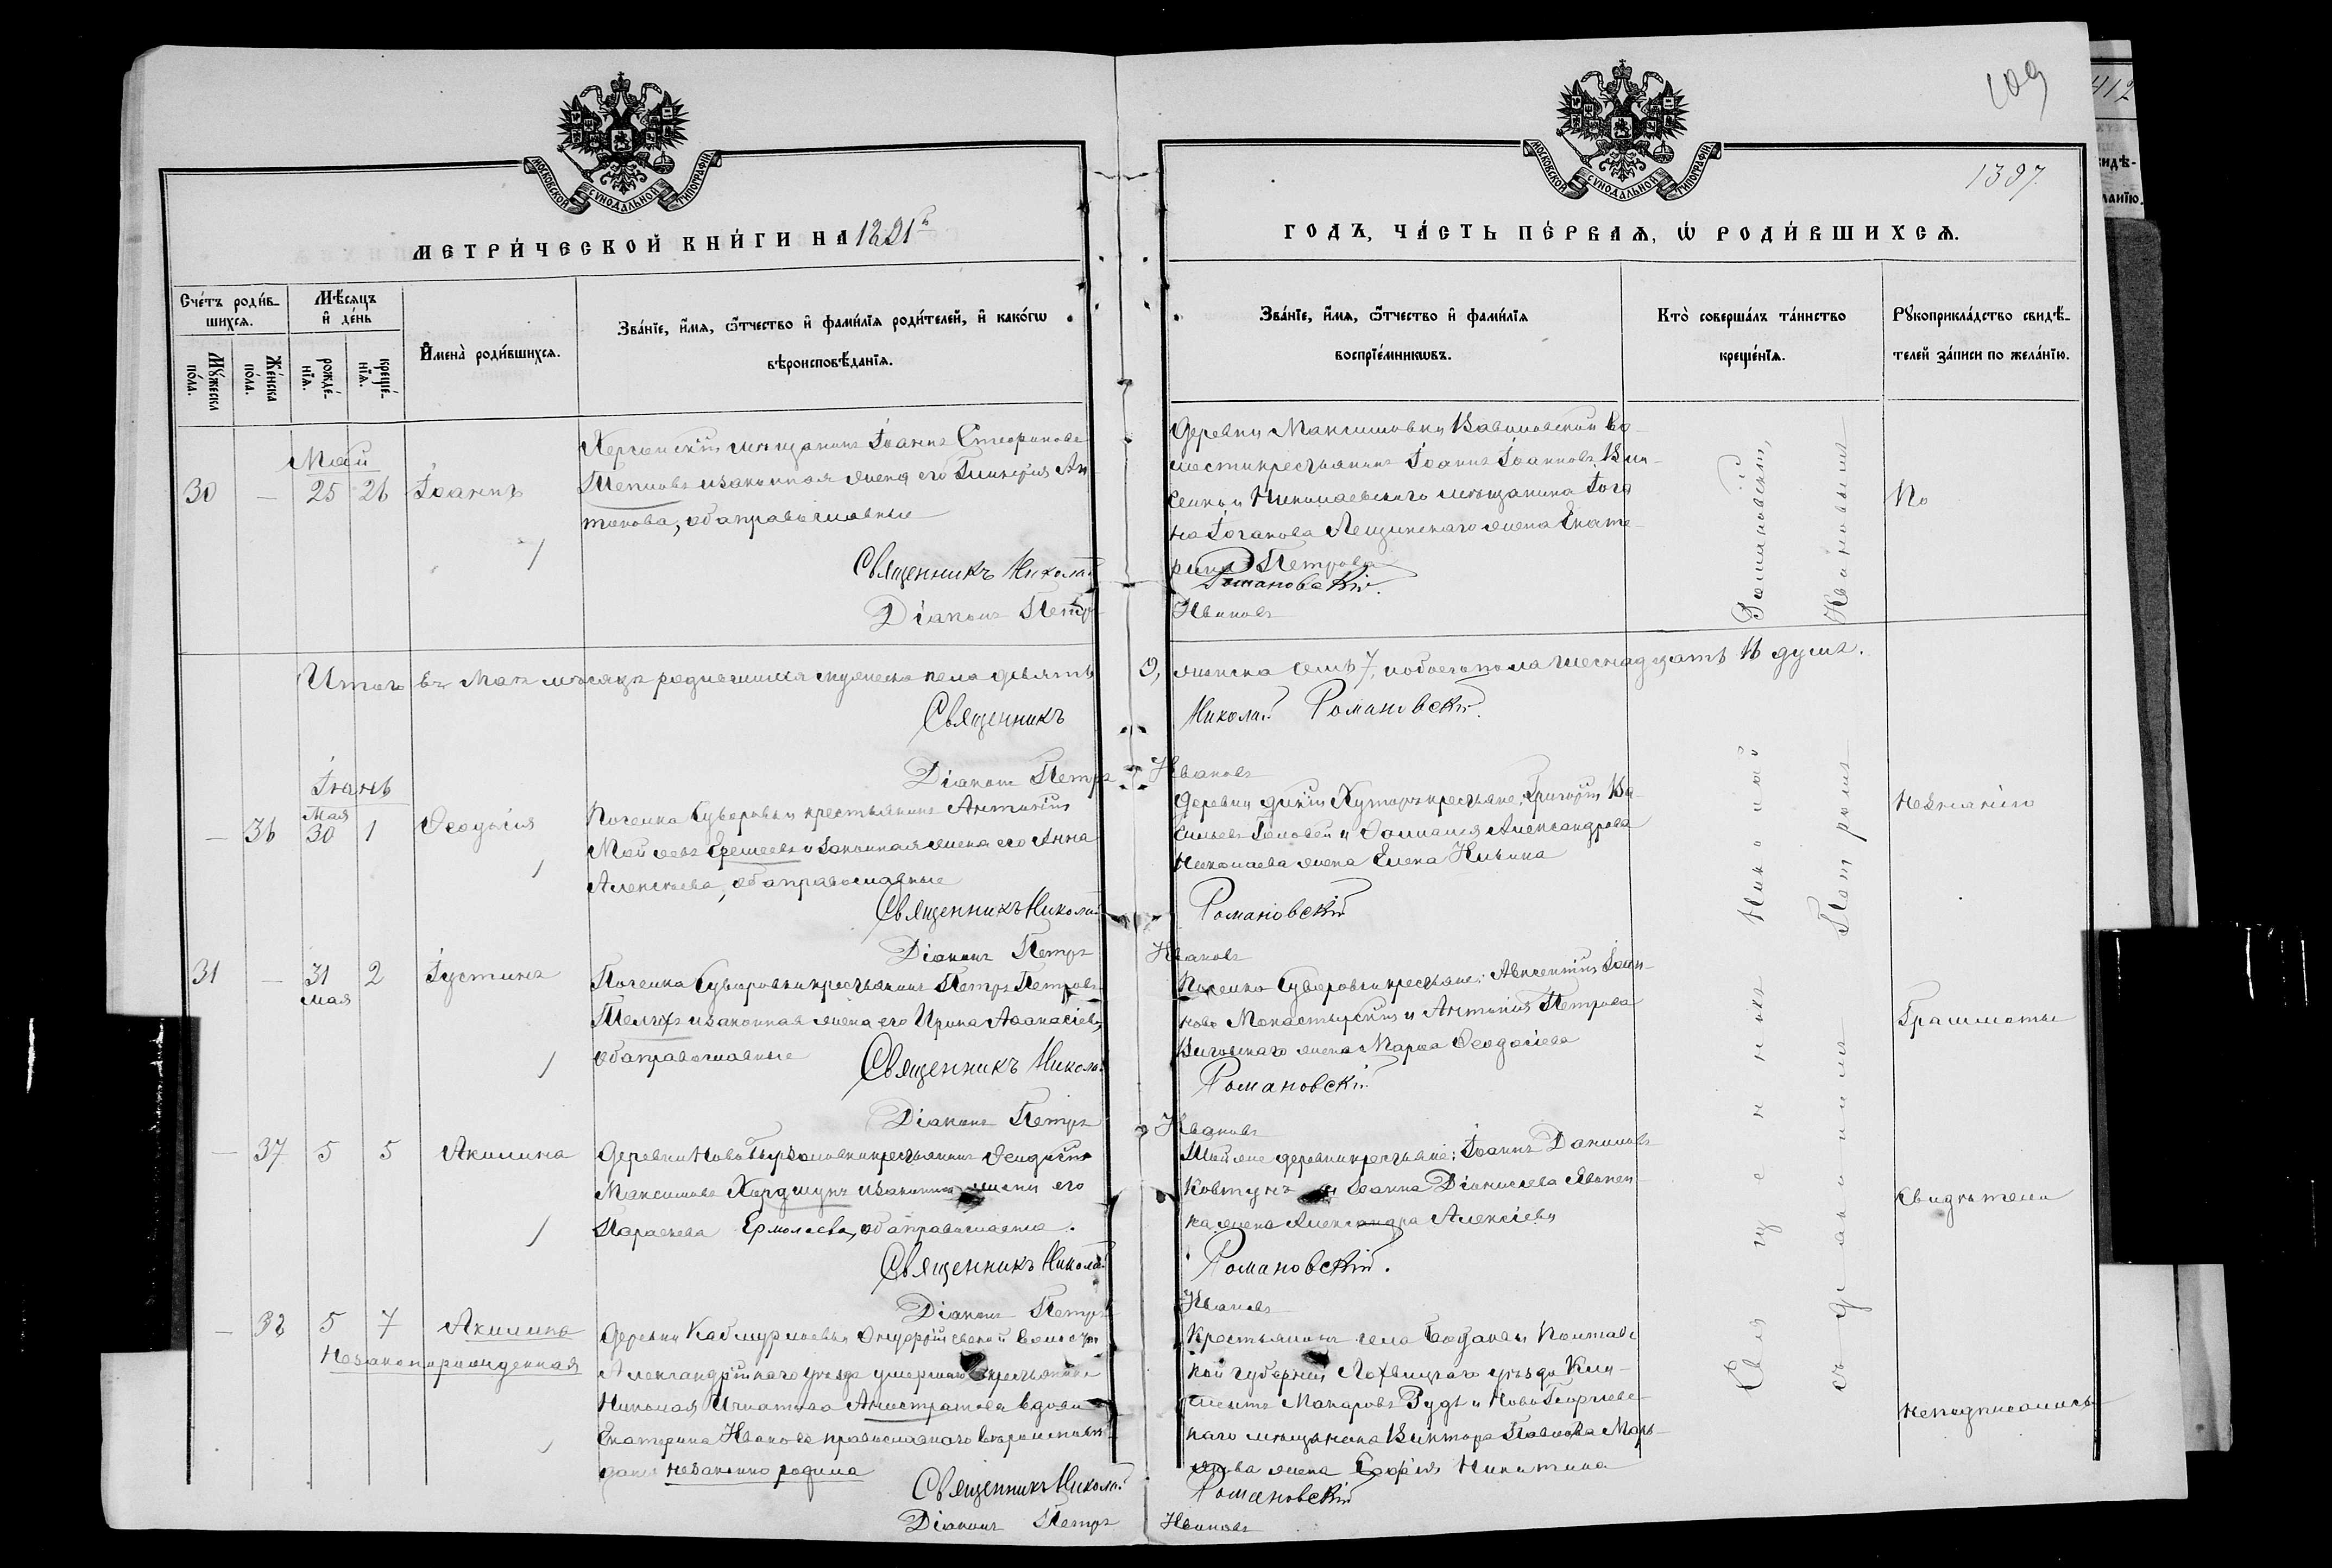 109
412
1397.
МОСКОВСКОЙ СѴНОДАЛЬНОЙ ТИПОГРАФІИ
МОСКОВСКОЙ СѴНОДАЛЬНОЙ ТИПОГРАФІИ
МЕТРИ́ЧЕСКОЙ КНИ́ГИ НА 1891й
ГОДЪ, ЧА́СТЬ ПЕ́РВАЯ, Ѡ РОДИ́ВШИХСЯ.
Сче́тъ роди́в-
шихся.
Мѣ́сяцъ
и҆ де́нь
Му́жеска по́ла.
Же́нска по́ла.
рожде́-нїя.
креще́-нїя.
И҆мена̀ роди́вшихся.
Зва́нїе, и҆́мя, ѻ҆́тчество и҆ фами́лїя роди́телей, и҆ како́гѡ
вѣроисповѣ́данїя.
Зва́нїе, и҆́мя, ѻ҆́тчество и҆ фами́лїя
воспрїе́мникѡвъ.
Кто̀ соверша́лъ та́инство
креще́нїя.
Рꙋкоприкла́дство свидѣ́-
телей за́писи по жела́нїю.
Май
30 — 25 26 Іоаннъ
Херсонскій мѣщанинъ Іоаннъ
Тепловъ и законная жена его Гликерія Ан
тонова, оба православные
Священникъ Николай
Діаконъ Петръ
Деревни Максимовки Вавиловской во-
лости крестьянинъ Іоаннъ Іоанновъ
и Николаевскаго мѣщанина Іоа
на Іоганова Лещинскаго жена Екате-
рина Петрова
Романовскій.
Ивановъ
По
Итого въ Маѣ мѣсяцѣ родившихся мужеска пола девять
9, женска семь 7, и обоего пола шеснадцать 16 душъ.
Священникъ
Николай Романовскій.
Діаконъ Петръ
Ивановъ
Іюнь
Мая
— 36 30 1 Ѳеодосія
Поселка Суворовки крестьянинъ Антоній
Мойсеевъ Еремеевъ и законная жена его Анна
Алексѣева, оба православные
Священникъ Николай
Діаконъ Петръ
Деревни Дикій Хуторъ крестьяне: Григорій Ва-
сильевъ Головей и Александрова
жена Елена Ильина
Романовскій
Ивановъ
Неимѣнію
31 — 31 2 Іустинъ
мая
Поселка Суворовки крестьянинъ Петръ Петровъ
и законная жена его Ирина Аѳанасіева,
оба православные
Священникъ Николай
Діаконъ Петръ
Поселка Суворовки крестьяне: Авксентій Іоан-
новъ Монастырскій и Антонія Петрова
жена Марѳа Ѳеодосіева
Романовскій.
Ивановъ
Грамоты
— 37 5 5 Акилина
Деревни Ново крестьянинъ Ѳеодосій
Максимовъ и законная жена его
Параскева Ермолаева, оба православные.
Священникъ Николай
Діаконъ Петръ
Той же деревни крестьяне: Іоаннъ Даниловъ
Ковтунъ и Іоанна Діонисіева
жена Александра Алексіева
Романовскій.
Ивановъ
Свидѣтели
— 38 5 7 Акилина
Незаконнорожденная
Деревни волости
Александрійскаго уѣзда умершаго крестьянина
Николая Игнатова вдова
Екатерина Иванова православнаго вѣроисповѣ-
данія незаконно родила
Священникъ Николай
Діаконъ Петръ
Крестьянинъ села Полтавс
кой губерніи Лохвицкаго уѣзда Кли-
ментъ Макаровъ Рудь и Ново Георгіевс
каго мѣщанина Виктора Павлова
жена Софія Никитина
Романовскій
Ивановъ
Неподписались
Священникъ Николай Романовскій,
съ діакономъ Петромъ Ивановымъ